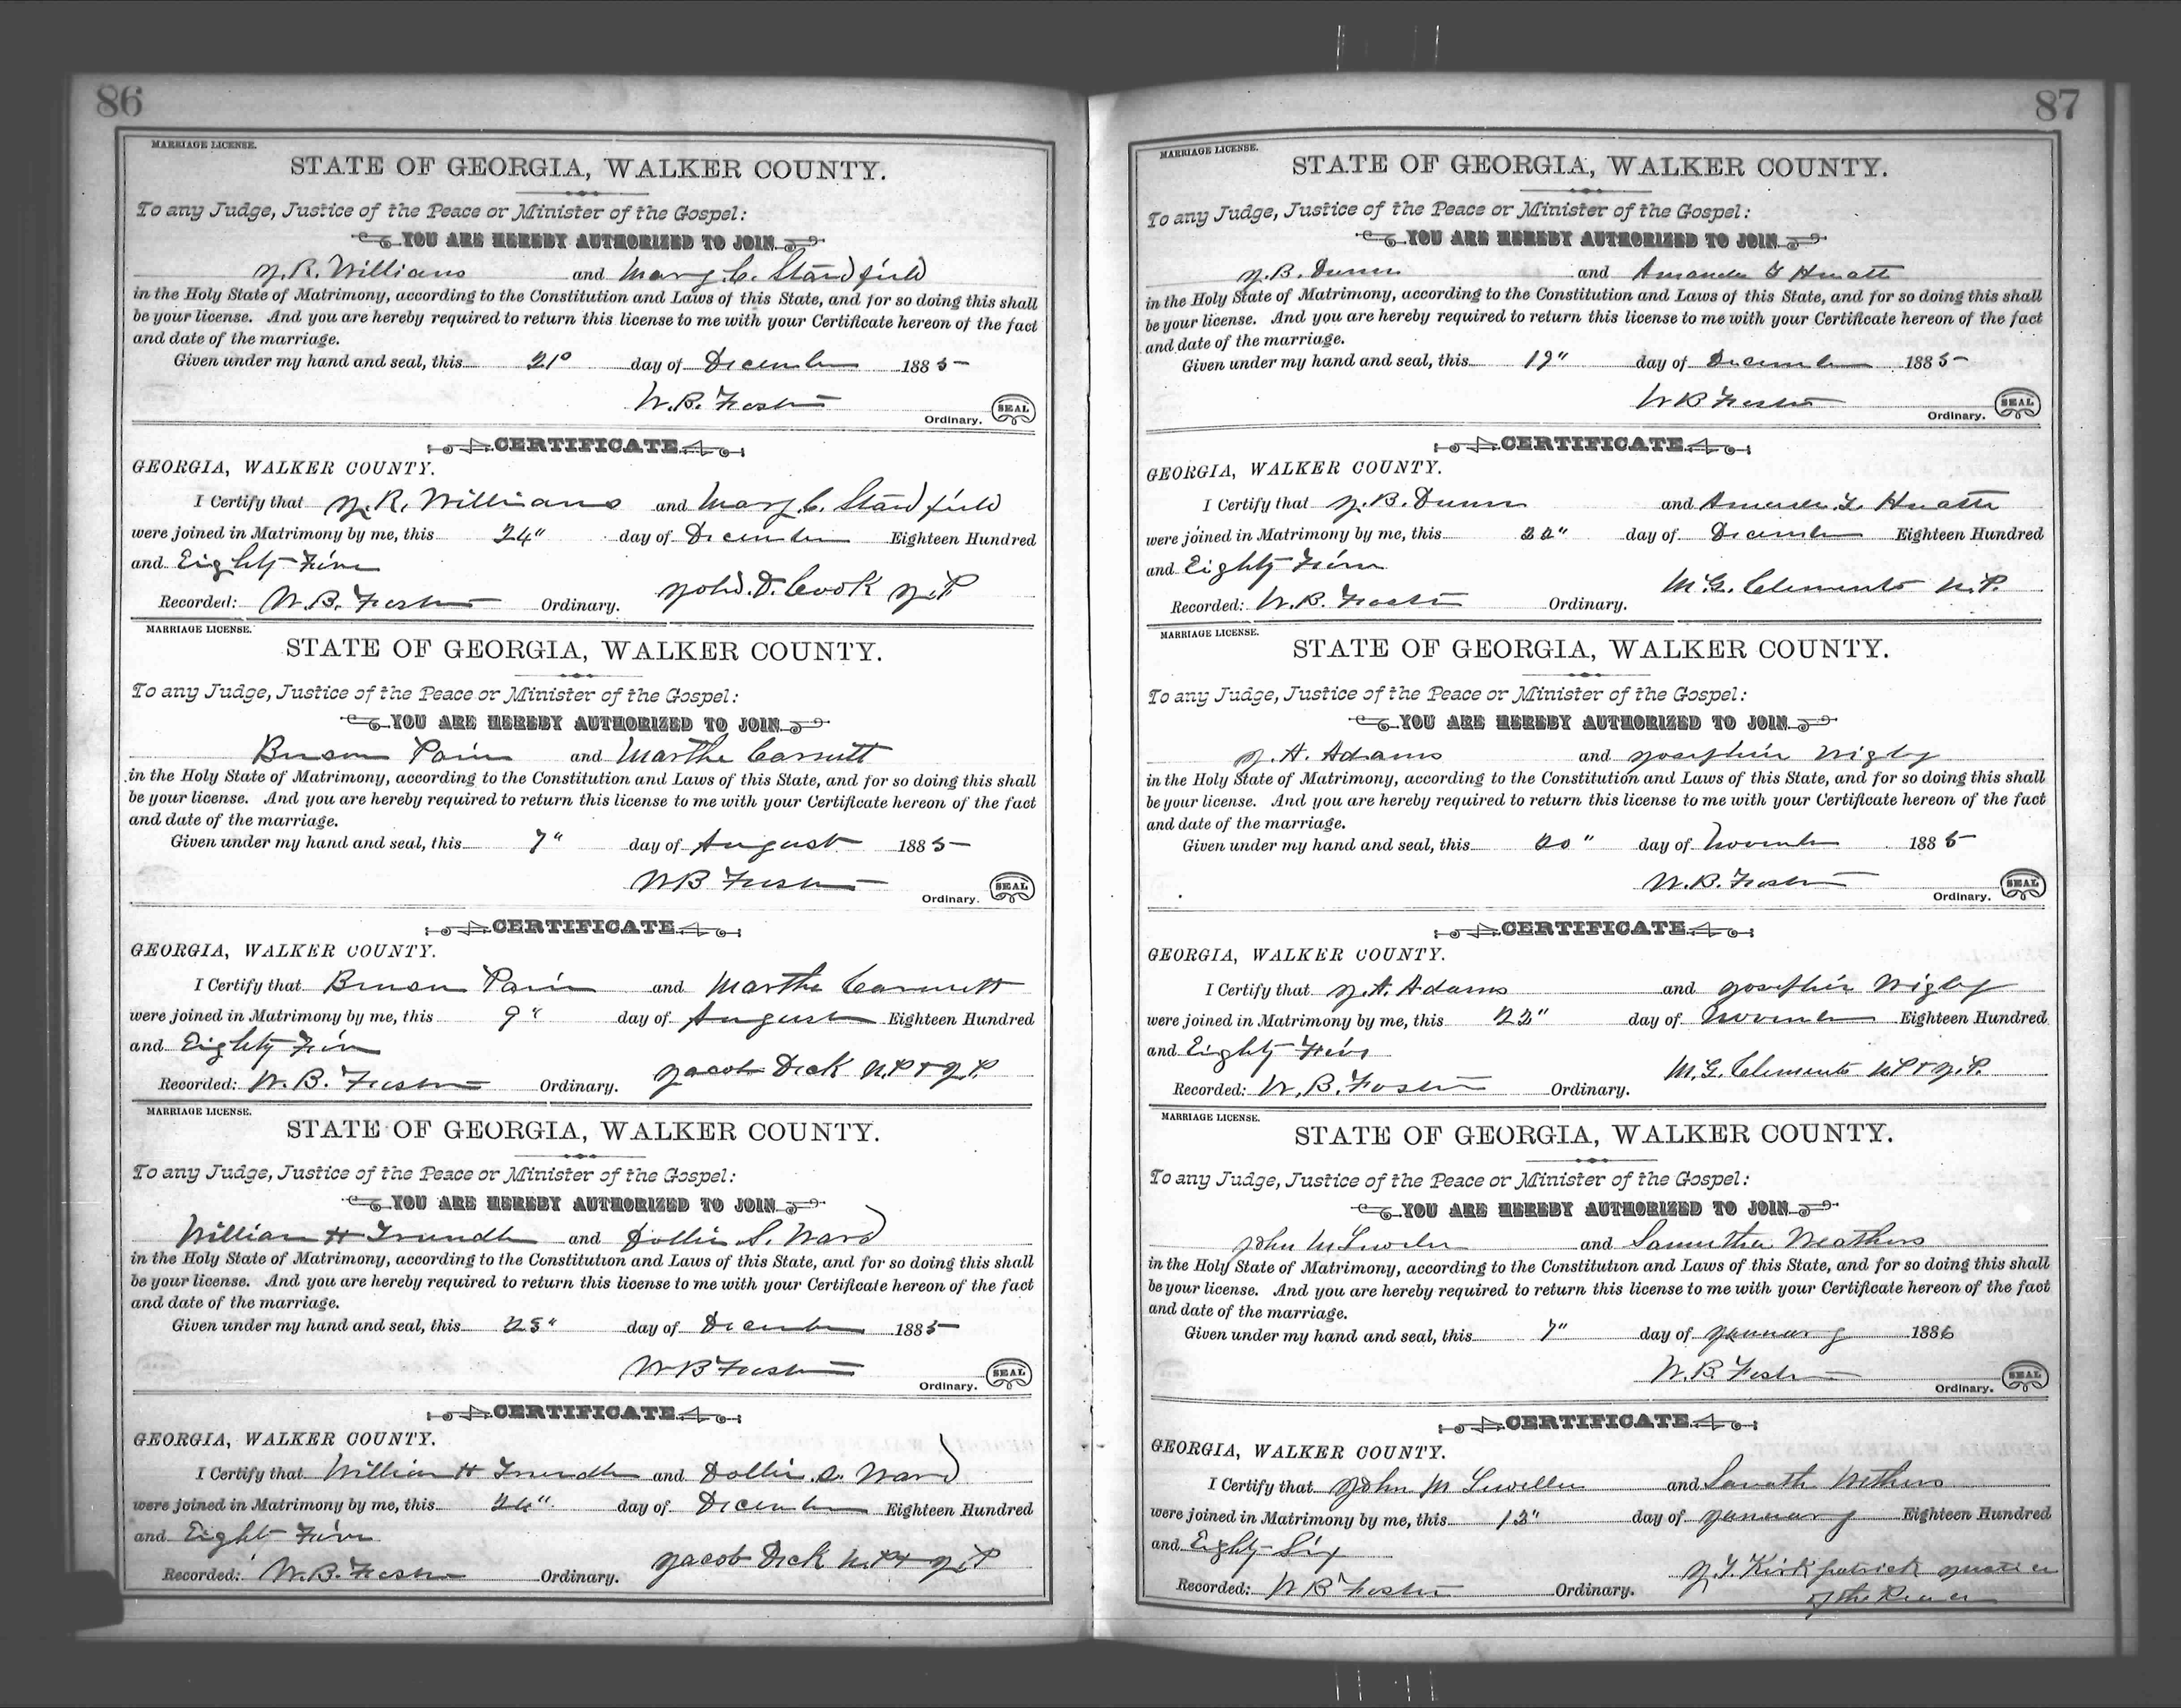 86
MARRIAGE LICENSE.
STATE OF GEORGIA, WALKER COUNTY.
To any Judge, Justice of the Peace or Minister of the Gospel:
YOU ARE HEREBY AUTHORIZED TO JOIN
J. R. Williams and Mary C. Standfield
in the Holy State of Matrimony, according to the Constitution and Laws of this State, and for so doing this shall
be your license. And you are hereby required to return this license to me with your Certificate hereon of the fact
and date of the marriage.
Given under my hand and seal, this 21 day of December 1885
W. B. Foster
Ordinary. SEAL
CERTIFICATE
GEORGIA, WALKER COUNTY.
I Certify that J. R. Williams and Mary C. Standfield
were joined in Matrimony by me, this 24" day of December Eighteen Hundred
and Eighty Five
Recorded: W. B. Foster Ordinary. D. Cook J. P
MARRIAGE LICENSE.
STATE OF GEORGIA, WALKER COUNTY.
To any Judge, Justice of the Peace or Minister of the Gospel:
YOU ARE HEREBY AUTHORIZED TO JOIN
and Martha
in the Holy State of Matrimony, according to the Constitution and Laws of this State, and for so doing this shall
be your license. And you are hereby required to return this license to me with your Certificate hereon of the fact
and date of the marriage.
Given under my hand and seal, this 7" day of August 1885
W B Foster
Ordinary. SEAL
CERTIFICATE
GEORGIA, WALKER COUNTY.
I Certify that and Martha
were joined in Matrimony by me, this 9" day of August Eighteen Hundred
and Eighty Five
Recorded: W. B. Foster Ordinary. Jacob Dick N.P & J.P.
MARRIAGE LICENSE.
STATE OF GEORGIA, WALKER COUNTY.
To any Judge, Justice of the Peace or Minister of the Gospel:
YOU ARE HEREBY AUTHORIZED TO JOIN
William H Trundle and Dollie S. Ward
in the Holy State of Matrimony, according to the Constitution and Laws of this State, and for so doing this shall
be your license. And you are hereby required to return this license to me with your Certificate hereon of the fact
and date of the marriage.
Given under my hand and seal, this 23" day of December 1885
W B Foster
Ordinary. SEAL
CERTIFICATE
GEORGIA, WALKER COUNTY.
I Certify that William H Trundle and Dollie S. Ward
were joined in Matrimony by me, this 24" day of December Eighteen Hundred
and Eight Five
Recorded: W. B. Foster Ordinary. Jacob Dick N.P & J.P
87
MARRIAGE LICENSE.
STATE OF GEORGIA, WALKER COUNTY.
To any Judge, Justice of the Peace or Minister of the Gospel:
YOU ARE HEREBY AUTHORIZED TO JOIN
J. B. Dunn and Amanda
in the Holy State of Matrimony, according to the Constitution and Laws of this State, and for so doing this shall
be your license. And you are hereby required to return this license to me with your Certificate hereon of the fact
and date of the marriage.
Given under my hand and seal, this 19" day of December 1885
W B Foster
Ordinary. SEAL
CERTIFICATE
GEORGIA, WALKER COUNTY.
I Certify that J. B. Dunn and Amanda
were joined in Matrimony by me, this 22" day of December Eighteen Hundred
and Eighty Five
Recorded: W. B. Foster Ordinary. M. G. Clements N. P.
MARRIAGE LICENSE.
STATE OF GEORGIA, WALKER COUNTY.
To any Judge, Justice of the Peace or Minister of the Gospel:
YOU ARE HEREBY AUTHORIZED TO JOIN
J. A. Adams and Josephine Wigley
in the Holy State of Matrimony, according to the Constitution and Laws of this State, and for so doing this shall
be your license. And you are hereby required to return this license to me with your Certificate hereon of the fact
and date of the marriage.
Given under my hand and seal, this 20" day of November 1885
W. B. Foster
Ordinary. SEAL
CERTIFICATE
GEORGIA, WALKER COUNTY.
I Certify that J. A. Adams and Josephine Wigley
were joined in Matrimony by me, this 22" day of November Eighteen Hundred
and Eighty Five
Recorded: W. B. Foster Ordinary. M. G. Clements N P & J. P.
MARRIAGE LICENSE.
STATE OF GEORGIA, WALKER COUNTY.
To any Judge, Justice of the Peace or Minister of the Gospel:
YOU ARE HEREBY AUTHORIZED TO JOIN
John M and Samitha Meathers
in the Holy State of Matrimony, according to the Constitution and Laws of this State, and for so doing this shall
be your license. And you are hereby required to return this license to me with your Certificate hereon of the fact
and date of the marriage.
Given under my hand and seal, this 7" day of January 1886
W. B Foster
Ordinary. SEAL
CERTIFICATE
GEORGIA, WALKER COUNTY.
I Certify that John M and
were joined in Matrimony by me, this 13" day of January Eighteen Hundred
and Eighty-Six
Recorded: W B Foster Ordinary. J. T. Kirkpatrick Justice
of the Peace